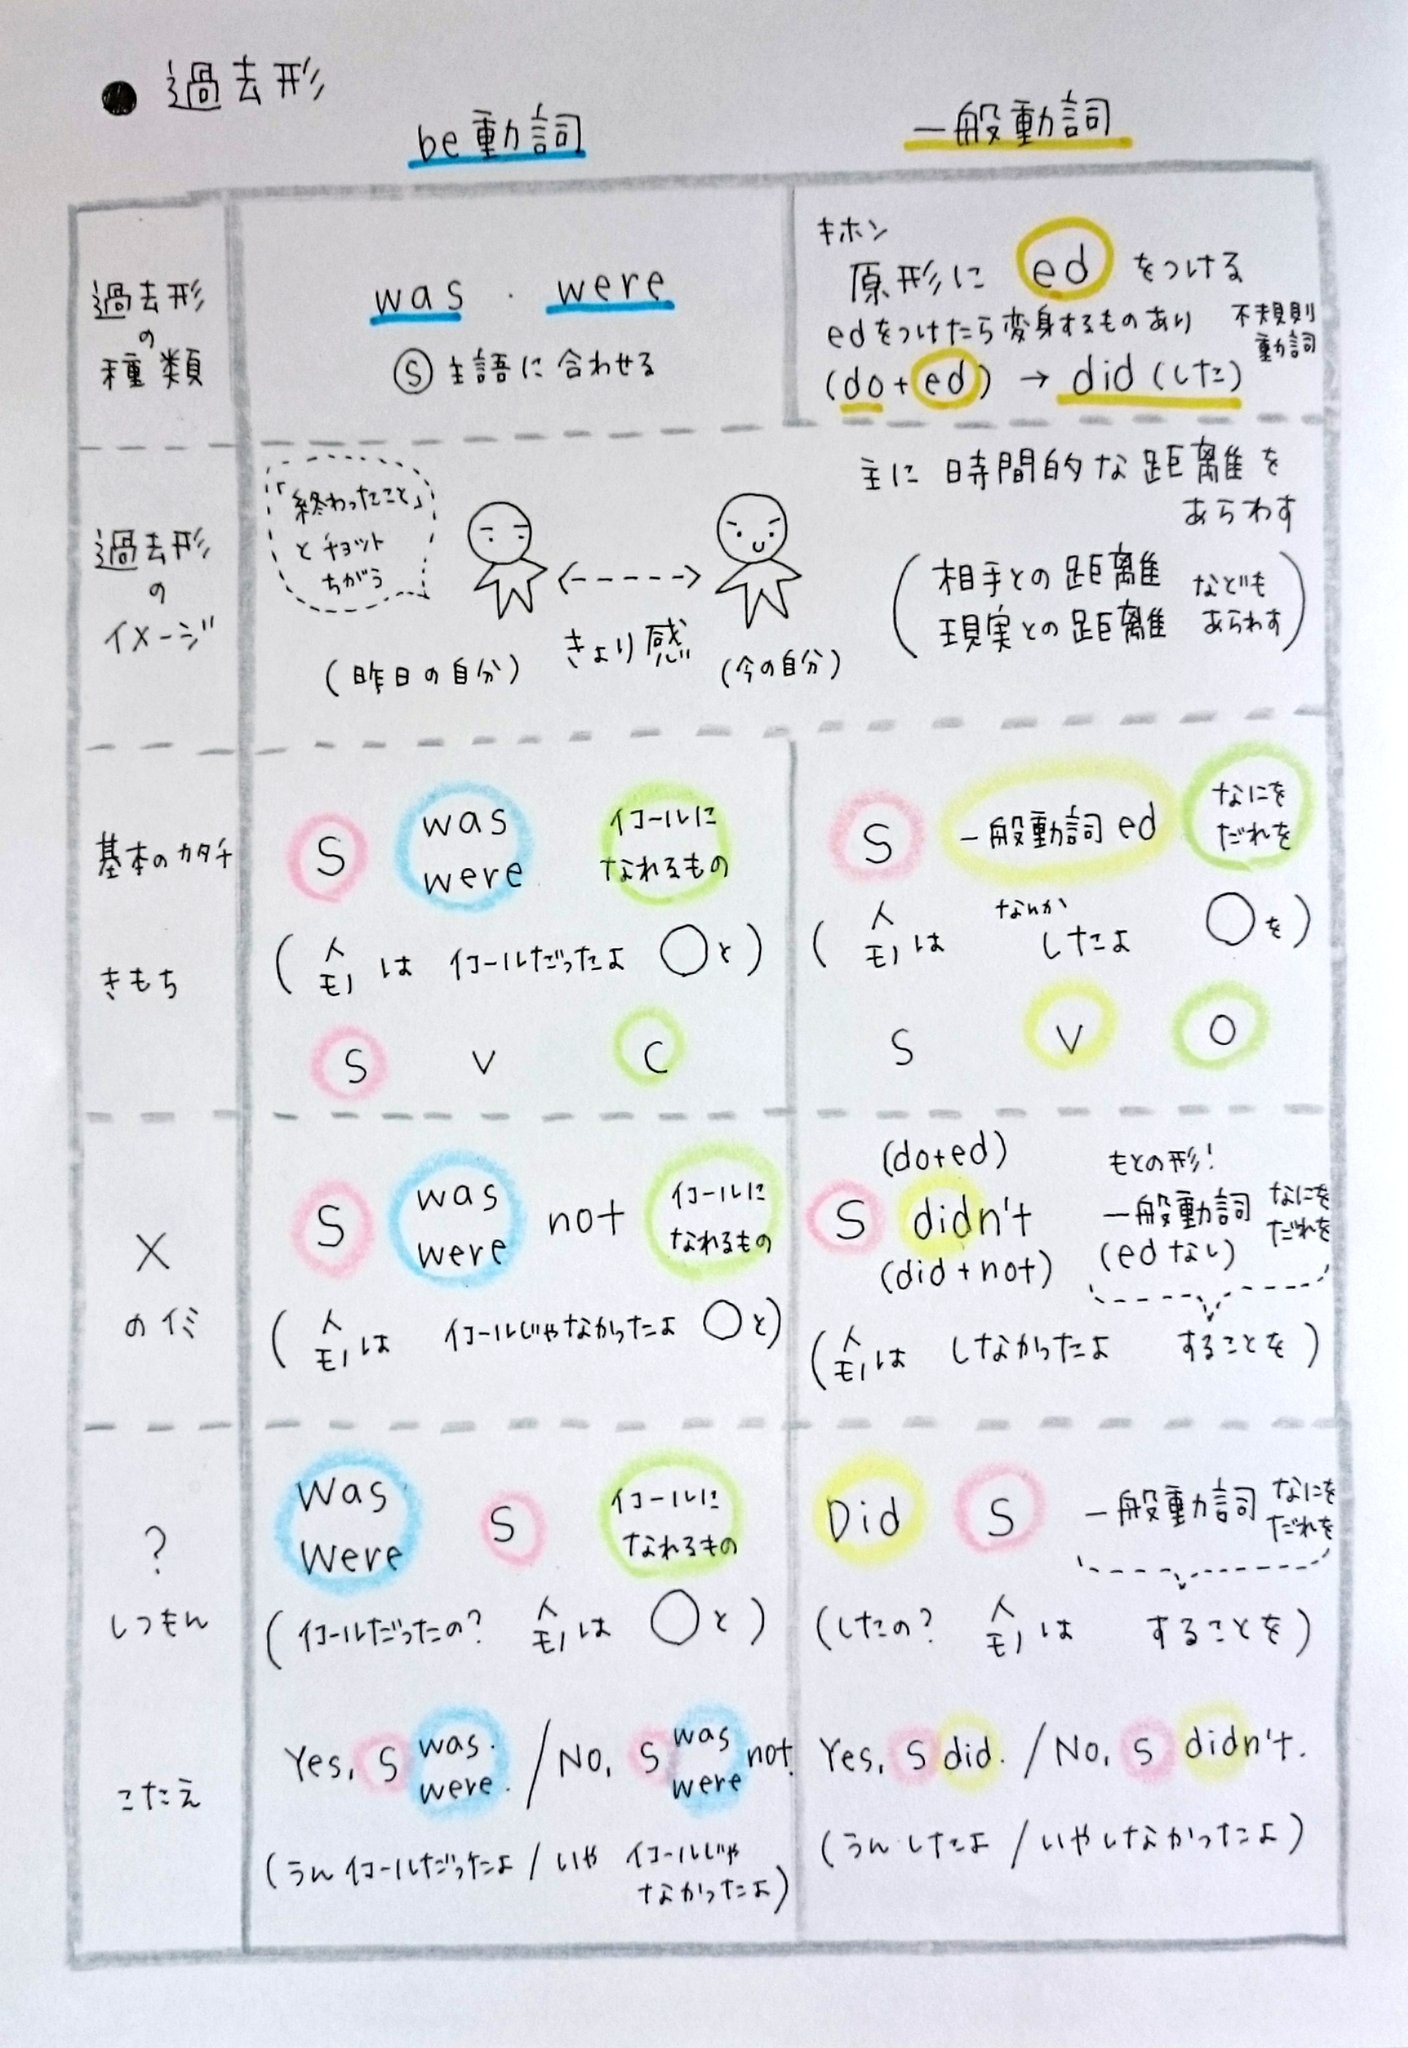 ● 過去形
be動詞
一般動詞
過去形
の
種類
was . were
Ⓢ 主語に合わせる
キホン
原形に ed をつける
edをつけたら変身するものあり
不規則
動詞
(do+ed) → did (した)
過去形
の
イメージ
「終わったこと」
と チョット
ちがう
(昨日の自分)
きょり感
(今の自分)
主に 時間的な距離を
あらわす
(相手との距離
現実との距離
なども
あらわす)
基本のカタチ
きもち
S
was
were
イコールに
なれるもの
(人
モノ は イコールだったよ ◯と)
S V C
S 一般動詞 ed
なにを
だれを
(人
モノ は
なんか
したよ ◯を)
S V O
×
のイミ
S
was
were
not
イコールに
なれるもの
(人
モノ は イコールじゃなかったよ ◯と)
(do+ed)
S didn't
(did + not)
もとの形!
一般動詞
(edなし)
なにを
だれを
(人
モノ は しなかったよ することを)
?
しつもん
Was
Were
S
イコールに
なれるもの
(イコールだったの? 人
モノ は ◯と)
Did S 一般動詞
なにを
だれを
(したの? 人
モノ は することを)
こたえ
Yes, S
was.
were.
/ No, S
was
were
not.
(うん イコールだったよ / いや イコールじゃ
なかったよ)
Yes, S did. / No, S didn't.
(うん したよ / いや しなかったよ)